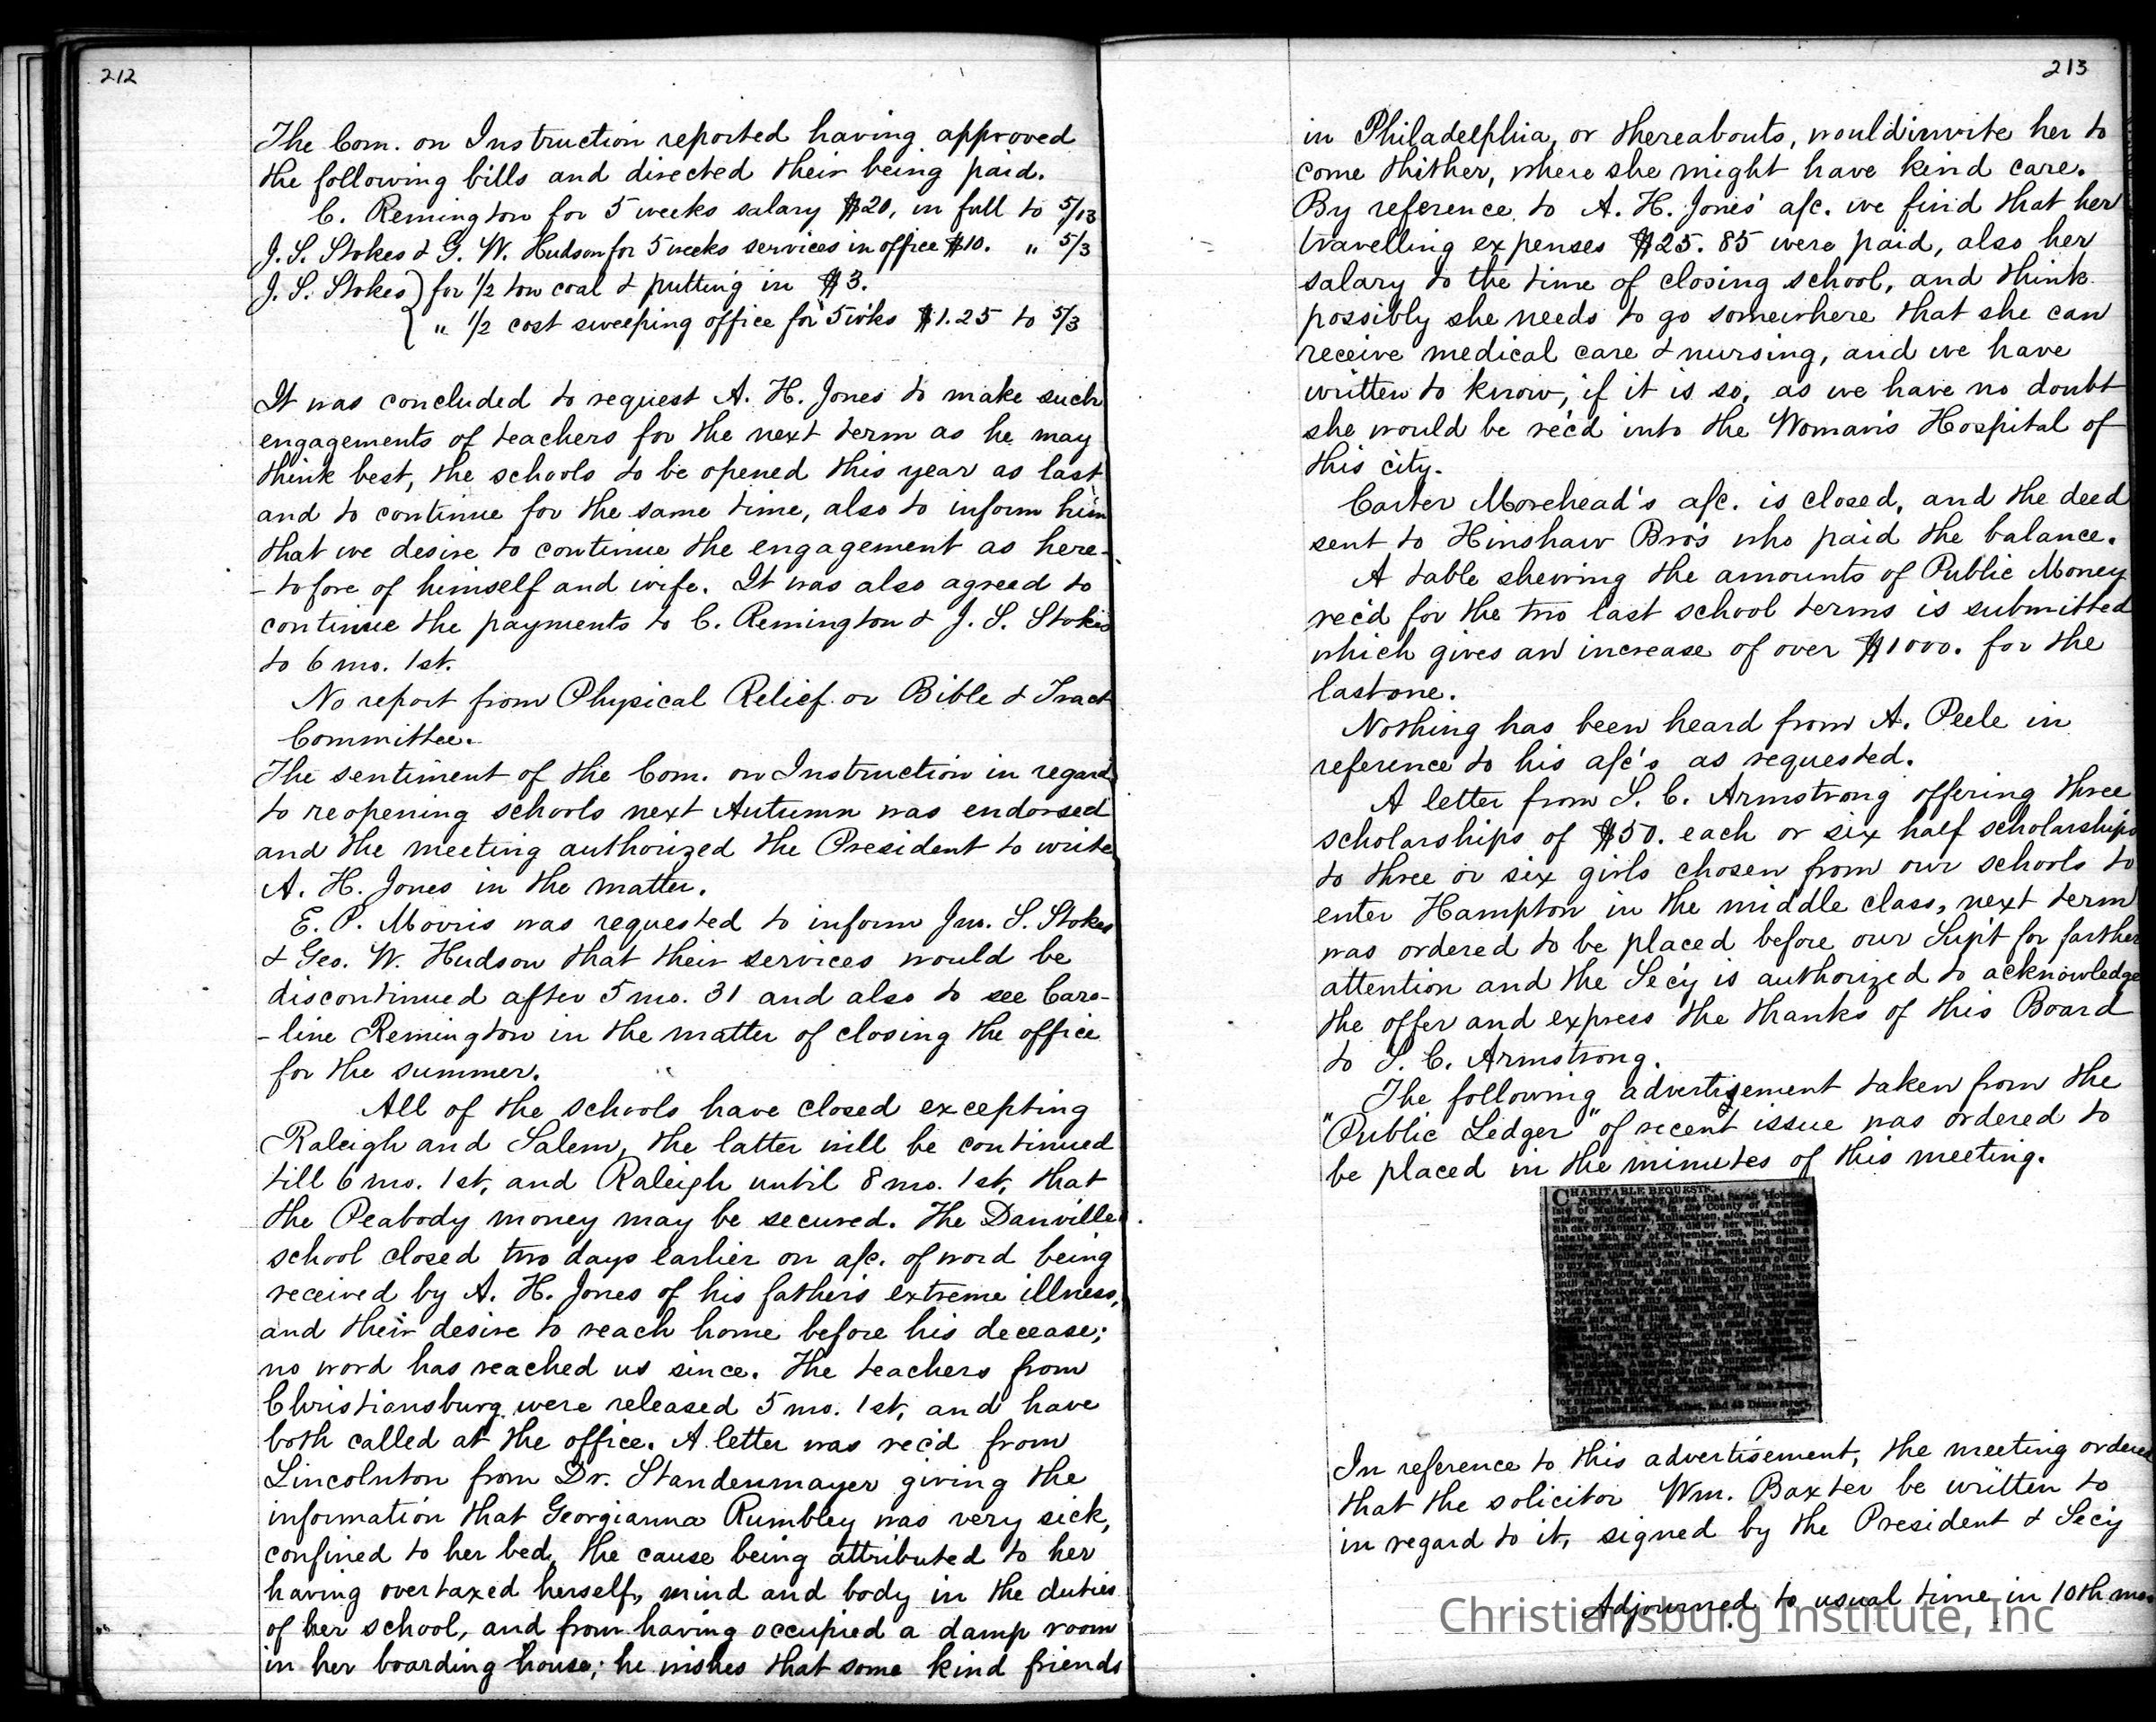 212
The Com. on Instruction reported having approved
the following bills and directed their being paid.
C. Remington for 5 weeks salary $20, in full to 5/13
J. S. Stokes & G. W. Hudson for 5 weeks services in office $10. " 5/3
J. S. Stokes) for 1/2 ton coal & putting in $3.
{ " 1/2 cost sweeping office for 5 w'ks $1.25 to 5/3
It was concluded to request A. H. Jones to make such
engagements of teachers for the next term as he may
think best, the schools to be opened this year as last
and to continue for the same time, also to inform him
that we desire to continue the engagement as here-
-tofore of himself and wife. It was also agreed to
continue the payments to C. Remington & J. S. Stokes
to 6 mo. 1st.
No report from Physical Relief or Bible & Tract
Committee.
The sentiment of the Com. on Instruction in regard
to reopening schools next Autumn was endorsed
and the meeting authorized the President to write
A. H. Jones in the matter.
E. P. Morris was requested to inform Jno. S. Stokes
& Geo. W. Hudson that their services would be
discontinued after 5 mo. 31 and also to see Caro-
-line Remington in the matter of closing the office
for the summer.
All of the schools have closed excepting
Raleigh and Salem, the latter will be continued
till 6 mo. 1st, and Raleigh until 8 mo. 1st, that
the Peabody money may be secured. The Danville
school closed two days earlier on a/c. of word being
received by A. H. Jones of his father's extreme illness,
and their desire to reach home before his decease;
no word has reached us since. The teachers from
Christiansburg were released 5 mo. 1st, and have
both called at the office. A letter was rec'd from
Lincolnton from Dr. Standenmayer giving the
information that Georgianna Rumbley was very sick,
confined to her bed, the cause being attributed to her
having overtaxed herself, mind and body in the duties
of her school, and from having occupied a damp room
in her boarding house; he wishes that some kind friends
213
in Philadelphia, or thereabouts, would invite her to
come thither, where she might have kind care.
By reference to A. H. Jones' a/c. we find that her
travelling expenses $25.85 were paid, also her
salary to the time of closing school, and think
possibly she needs to go somewhere that she can
receive medical care & nursing, and we have
written to know, if it is so, as we have no doubt
she would be rec'd into the Woman's Hospital of
this city.
Carter Morehead's a/c. is closed, and the deed
sent to Hinshaw Bro's who paid the balance.
A table shewing the amounts of Public Money
rec'd for the two last school terms is submitted
which gives an increase of over $1000. for the
last one.
Nothing has been heard from A. Peele in
reference to his a/c's as requested.
A letter from S. C. Armstrong offering three
scholarships of $50. each or six half scholarships
to three or six girls chosen from our schools to
enter Hampton in the middle class, next term
was ordered to be placed before our Sup't for farther
attention and the Sec'y is authorized to acknowledge
the offer and express the thanks of this Board
to S. C. Armstrong.
The following advertisement taken from the
"Public Ledger" of recent issue was ordered to
be placed in the minutes of this meeting.
CHARITABLE BEQUESTS.
Notice is hereby given that Sarah Hobson,
late of in the County of Antrim
widow, who died at
day of January, did by her will, bearing
date the day of November, bequeath a
In reference to this advertisement, the meeting ordered
that the solicitor Wm. Baxter be written to
in regard to it, signed by the President & Sec'y
Adjourned to usual time in 10th mo.
Christiansburg Institute, Inc